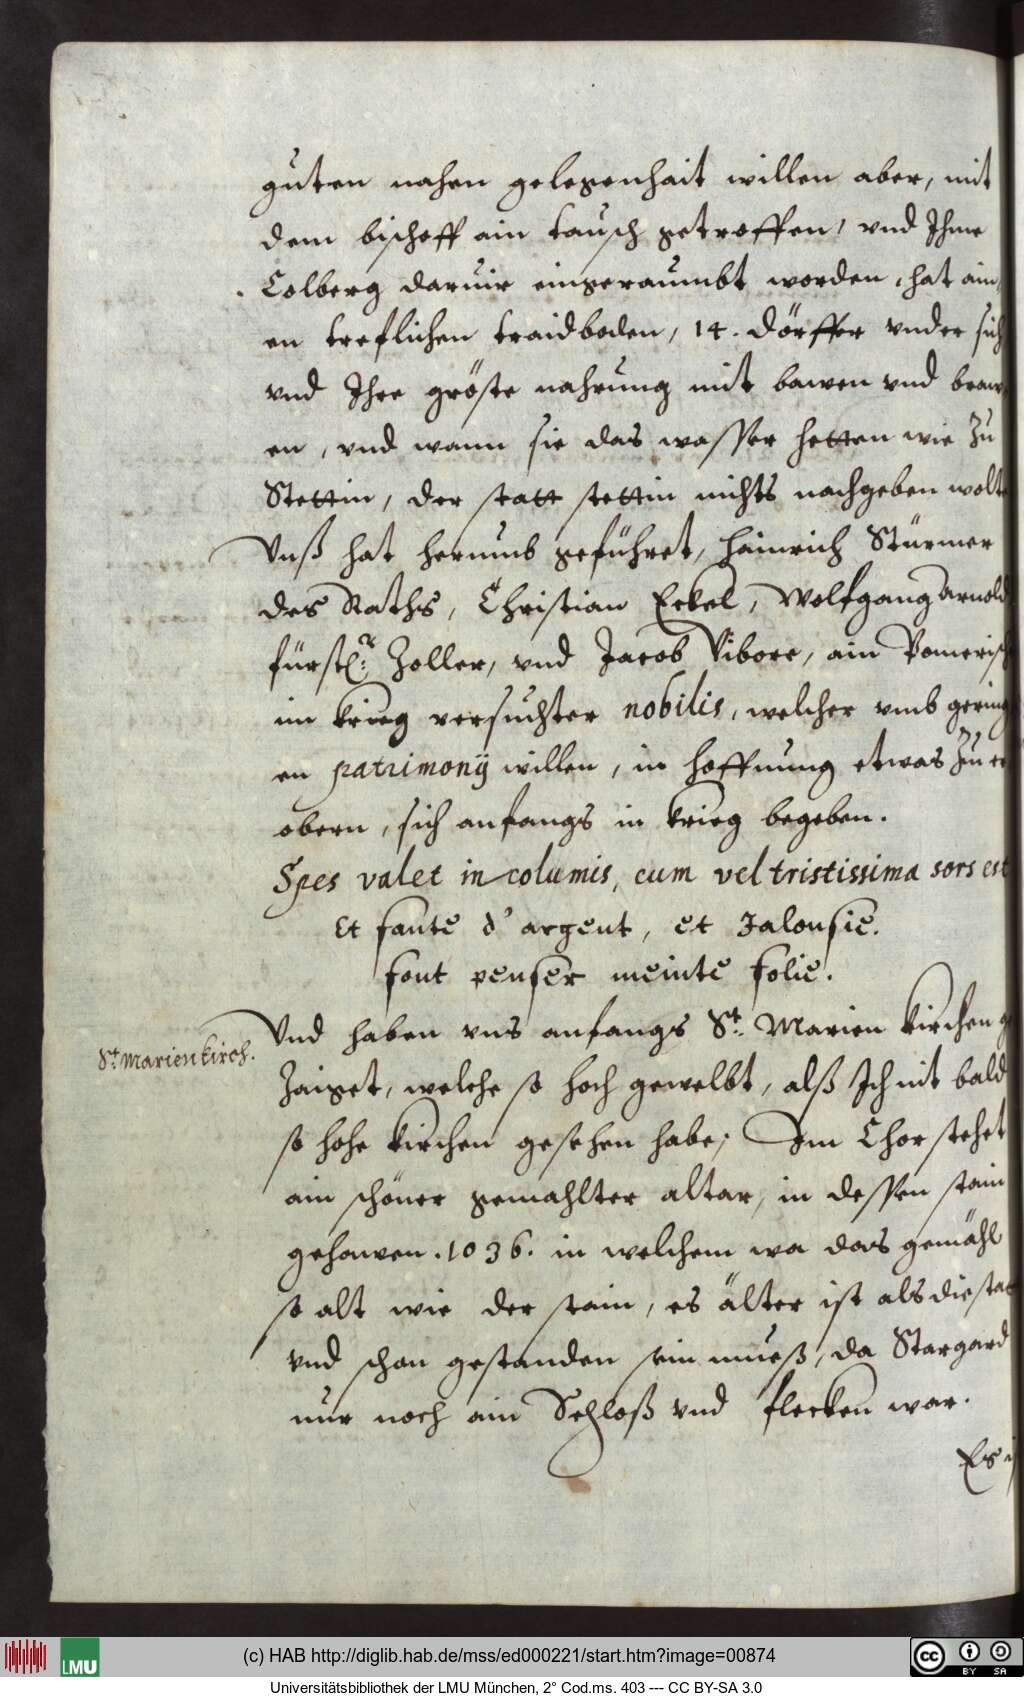 guten nahen gelegenhait willen aber, mit
dem bischoff ain tausch getroffen, vnd Ihme
Colberg daruir eingeraumbt worden, hat ain
en treflichen traidboden, 14. dörffer vnder sich
vnd Ihre gröste nahrung mit bawen vnd braw
en, vnd wann sie das wasser hetten wie zu
Stettin, der statt stettin nichts nachgeben wolt
Vnß hat herumb geführet, Hainrich Stürmer
des Raths, Christian Eckel, Wolfgang Arnold
fürstl: Zoller, vnd Jacob Vibore, ain Pomerisch
im krieg versuchter nobilis, welcher vmb gering
en patrimonij willen, in hoffnung etwas zu er
obern, sich anfangs in krieg begeben.
Spes valet in columis, cum vel tristissima sors est
Et faute d'argent, et Jalousie.
font penser meinte folie.
St. Marien kirch.
Vnd haben vns anfangs St. Marien kirchen ge
zaiget, welche so hoch gewelbt, alß Ich nit bald
so hohe kirchen gesehen habe; Im Chor stehet
ain schöner gemahlter altar, in dessen stain
gehawen .1036. in welchem wa das gemähl
so alt wie der stain, es älter ist als die stat
vnd schon gestanden sein mueß, da Stargard
nur noch ain Schloß vnd flecken war.
Es
(c) HAB http://diglib.hab.de/mss/ed000221/start.htm?image=00874
LMU
cc BY SA
Universitätsbibliothek der LMU München, 2° Cod.ms. 403 --- CC BY-SA 3.0